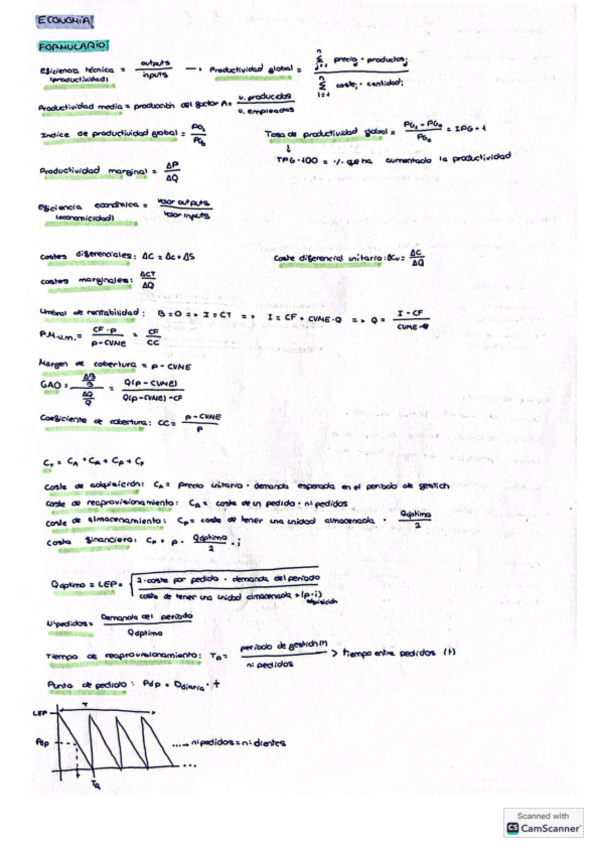 ECONOMÍA
FORMULARIO:
Eficiencia técnica = outputs / inputs → Productividad global = Σ precioⱼ · productosⱼ / Σ costeᵢ · cantidadᵢ
(productividad)
Productividad media = producción del factor A = u. producidas / u. empleadas
Índice de productividad global = PG₁ / PG₀
Tasa de productividad global = PG₁ - PG₀ / PG₀ = IPG - 1
↓
TPG · 100 = % que ha aumentado la productividad
Productividad marginal = ΔP / ΔQ
Eficiencia económica = valor outputs / valor inputs
(economicidad)
Costes diferenciales: ΔC = Δc + ΔS
Coste diferencial unitario: ΔCu = ΔC / ΔQ
Costes marginales: ΔCT / ΔQ
Umbral de rentabilidad: B = 0 => I = CT => I = CF + CVME · Q => Q = I - CF / CVME · Q
P.M.u.m. = CF · p / p - CVME = CF / CC
Margen de cobertura = p - CVME
GAO = ΔB/B / ΔQ/Q = Q(p - CVME) / Q(p - CVME) - CF
Coeficiente de cobertura: CC = p - CVME / p
Coste de adquisición: Cₐ = precio unitario · demanda esperada en el periodo de gestión
Coste de reaprovisionamiento: C_R = coste de un pedido · nº pedidos
Coste de almacenamiento: Cₚ = coste de tener una unidad almacenada · Qóptimo / 2
Costo financiero: C_F = p · Qóptimo / 2 · i
Qóptimo = LEP = √ 2 · coste por pedido · demanda del período / coste de tener una unidad almacenada + (p · i)
adquisición
Nºpedidos = Demanda del período / Qóptimo
Tiempo de reaprovisionamiento: T_R = período de gestión / nº pedidos > tiempo entre pedidos (t)
Punto de pedido: Pdp = Ddiaria · t
T
LEP
Pdp
.... → nº pedidos = nº dientes
...
Scanned with
CS CamScanner